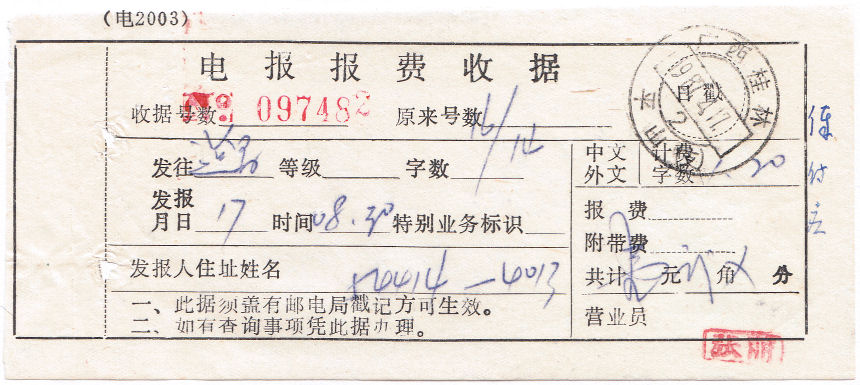 (电2003)
电报报费收据
收据号数 097482 原来号数 16/14
日戳
广西桂林
发往 等级 字数
中文 计费
外文 字数 20
发报
月日 17 时间 08.30 特别业务标识
报费
附带费
发报人住址姓名 4414-4013
共计 元 角 分
一、此据须盖有邮电局戳记方可生效。
二、如有查询事项凭此据办理。
营业员